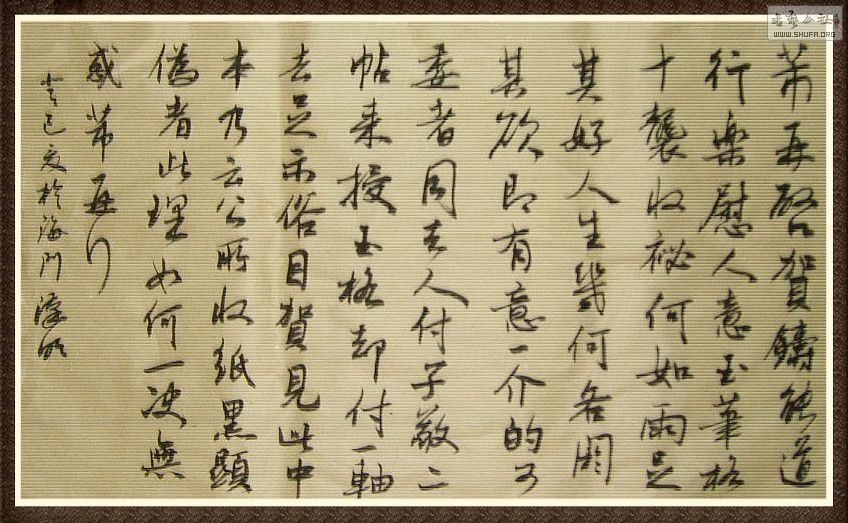 芾再啓賀鑄能道
行樂慰人意玉筆格
十襲收祕何如兩足
其好人生幾何各閼
其欲即有意一介的可
委者回去人付子敬二
帖来授玉格却付一軸
去足示俗目賀見此中
本乃云公所收紙黑顯
僞者此理如何一决無
惑芾再行
癸巳夏於海門
书艺公社
WWW.SHUFA.ORG